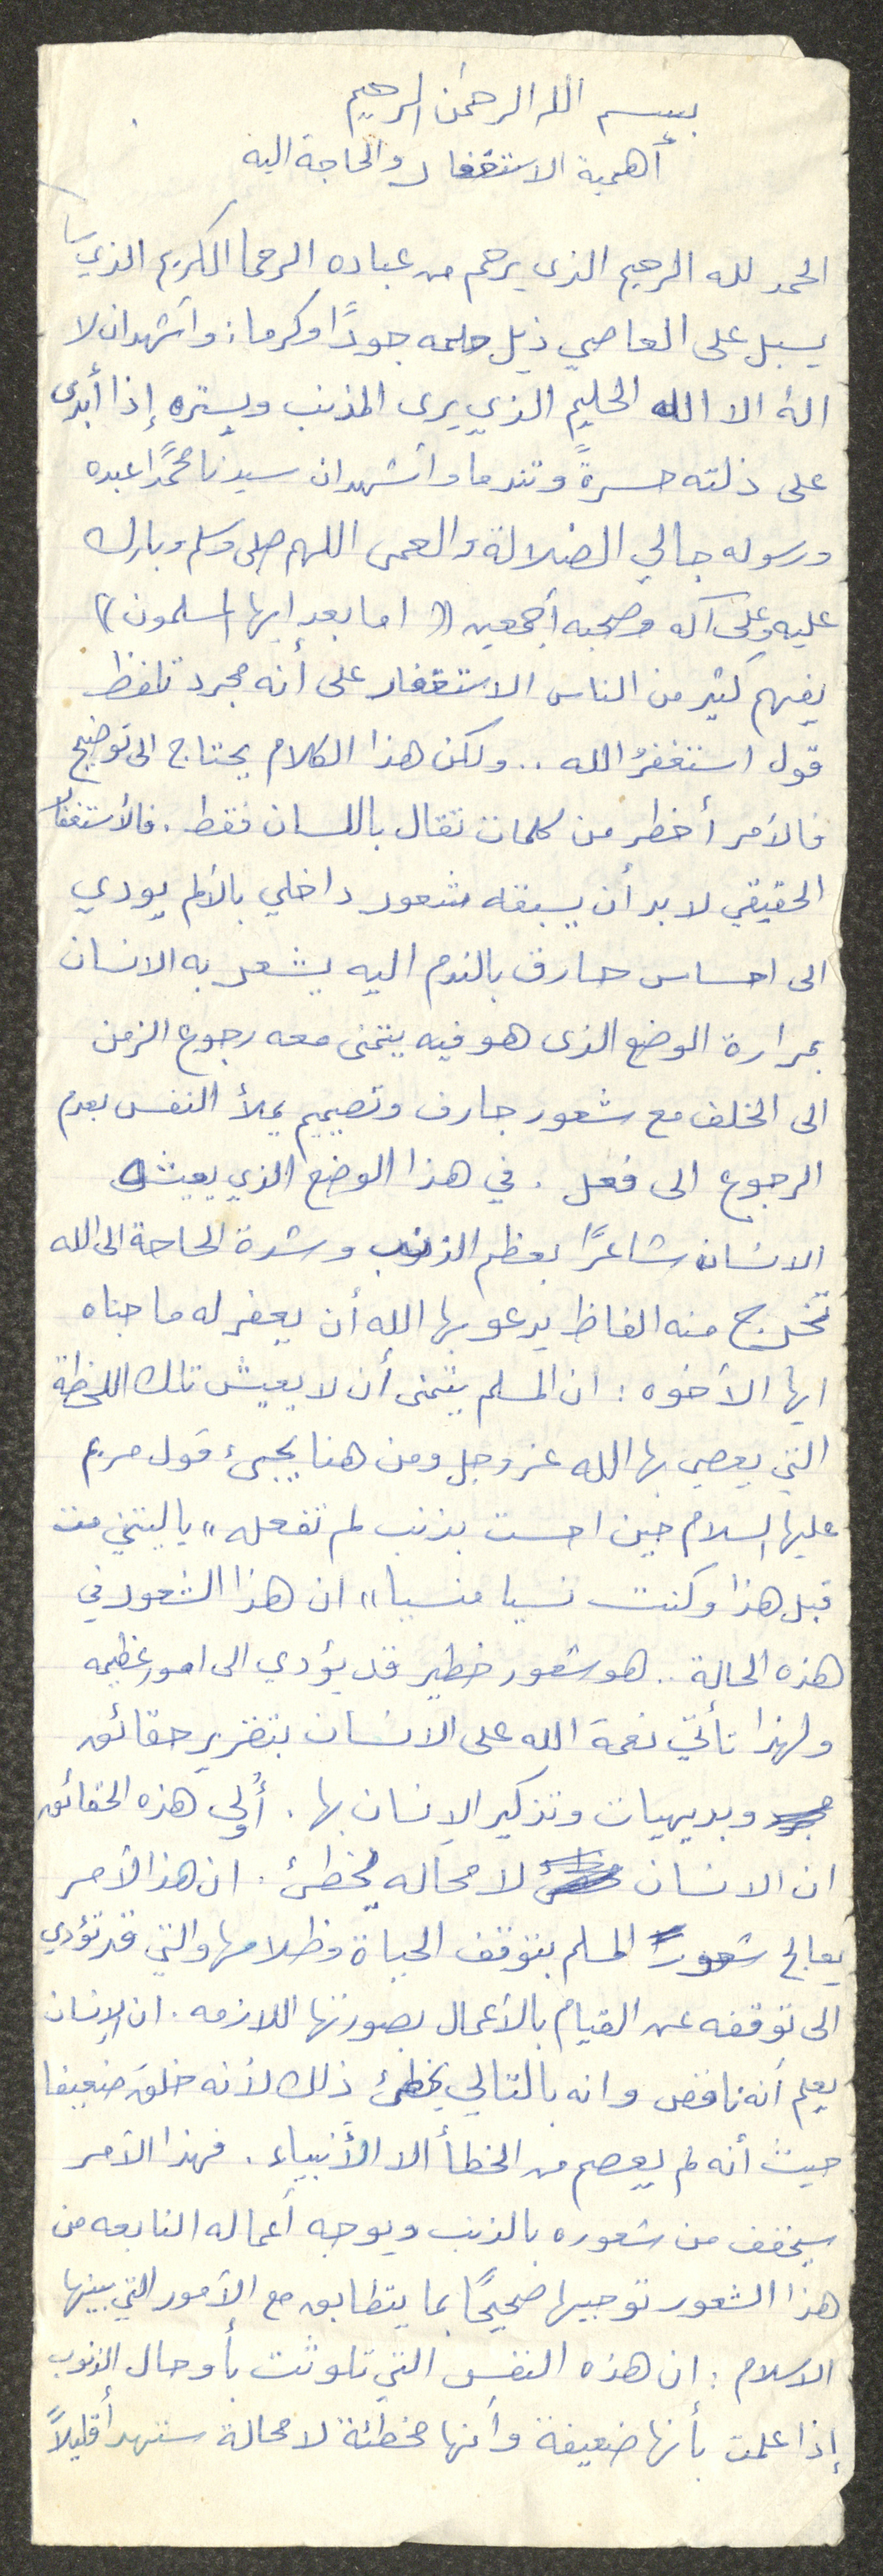 بسم الله الرحمن الرحيم
أهمية الاستغفار والحاجة اليه
الحمد لله الرحيم الذى يرحم من عباده الرحما الكريم الذي
يسبل على العاصي ذيل حلمه جودًا وكرما: وأشهد ان لا
اله الا الله الحليم الذي يرى المذنب ويستره إذا أبدى
على ذلته حسرةً وتندما وأشهد ان سيدنا محمدًا عبده
ورسوله جالي الضلالة والعمى اللهم صلى وسلم وبارك
عليه وعلى آله وصحبه أجمعين (( اما بعد ايها المسلمون ))
يفهم كثير من الناس الاستغفار على أنه مجرد تلفظ
قول استغفرُ الله .. ولكن هذا الكلام يحتاج الى توضيح
فالأمر أخطر من كلمات تقال باللسان فقط . فالأستغفار
الحقيقي لا بد أن يسبقه شعور داخلي بالألم يودي
الى احساس حارق بالندم اليه يشعر به الانسان
بمرارة الوضع الذى هو فيه يتمنى معه رجوع الزمن
الى الخلف مع شعور جارف وتصميم يملأ النفس بعدم
الرجوع الى فعل . في هذا الوضع الذي يعيشه
الانسان شاعرًا بعظم الذنب وشدة الحاجة الى الله
تخرج منه الفاظ يدعو بها الله أن يعفر له ما جناه
ايها الأخوه : ان المسلم يتمنى أن لا يعيش تلك اللحظة
التي يعصي بها الله عز وجل ومن هنا يجىء قول مريم
عليها السلام حين احست بذنب لم تفعله " يا ليتني مت
قبل هذا وكنت نسيا منسيا " ان هذا الشعور في
هذه الحالة .. هو شعور خطير قد يؤدي الى امور عظيمه
ولهذا تأتي نعمة الله على الانسان بتقرير حقائق
وبديهيات وتذكير الإنسان بها . أولى هذه الحقائق
ان الانسان لا محاله يخطئ . ان هذا الأمر
يعالج شعور المسلم بتوقف الحياة وظلامها والتي قد تؤدي
الى توقفه عن القيام بالأعمال بصورتها اللازمه . ان الإنسان
يعلم أنه ناقص وانه بالتالي يخطئ ذلك لأنه خلق ضعيفا
حيث أنه لم يعصم من الخطأ الا الأنبياء . فهذا الأمر
سيخفف من شعوره بالذنب ويوجه أعماله النابعه من
هذا الشعور توجيها صحيحًا بما يتطابق مع الأمور التي بينها
الاسلام : ان هذه النفس التي تلوثت بأوحال الذنوب
إذا علمت بأنها ضعيفة وأنها مخطئة لا محالة ستهدأ قليلاً